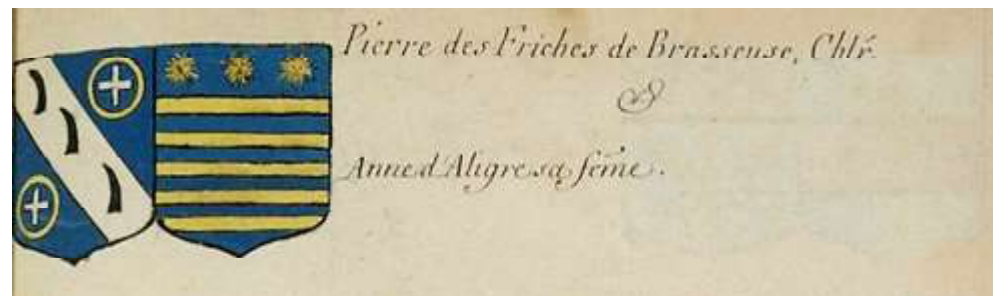 Pierre des Friches de Brasseuse, Chlr.
&
Anne d'Aligre sa feme.